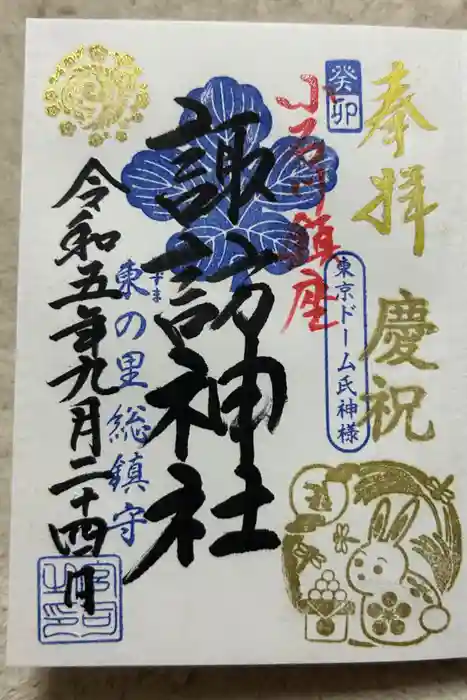 奉拝 慶祝
癸卯
小石川鎮座
東京ドーム氏神様
諏訪神社
あずま
東の里総鎮守
令和五年九月二十四日